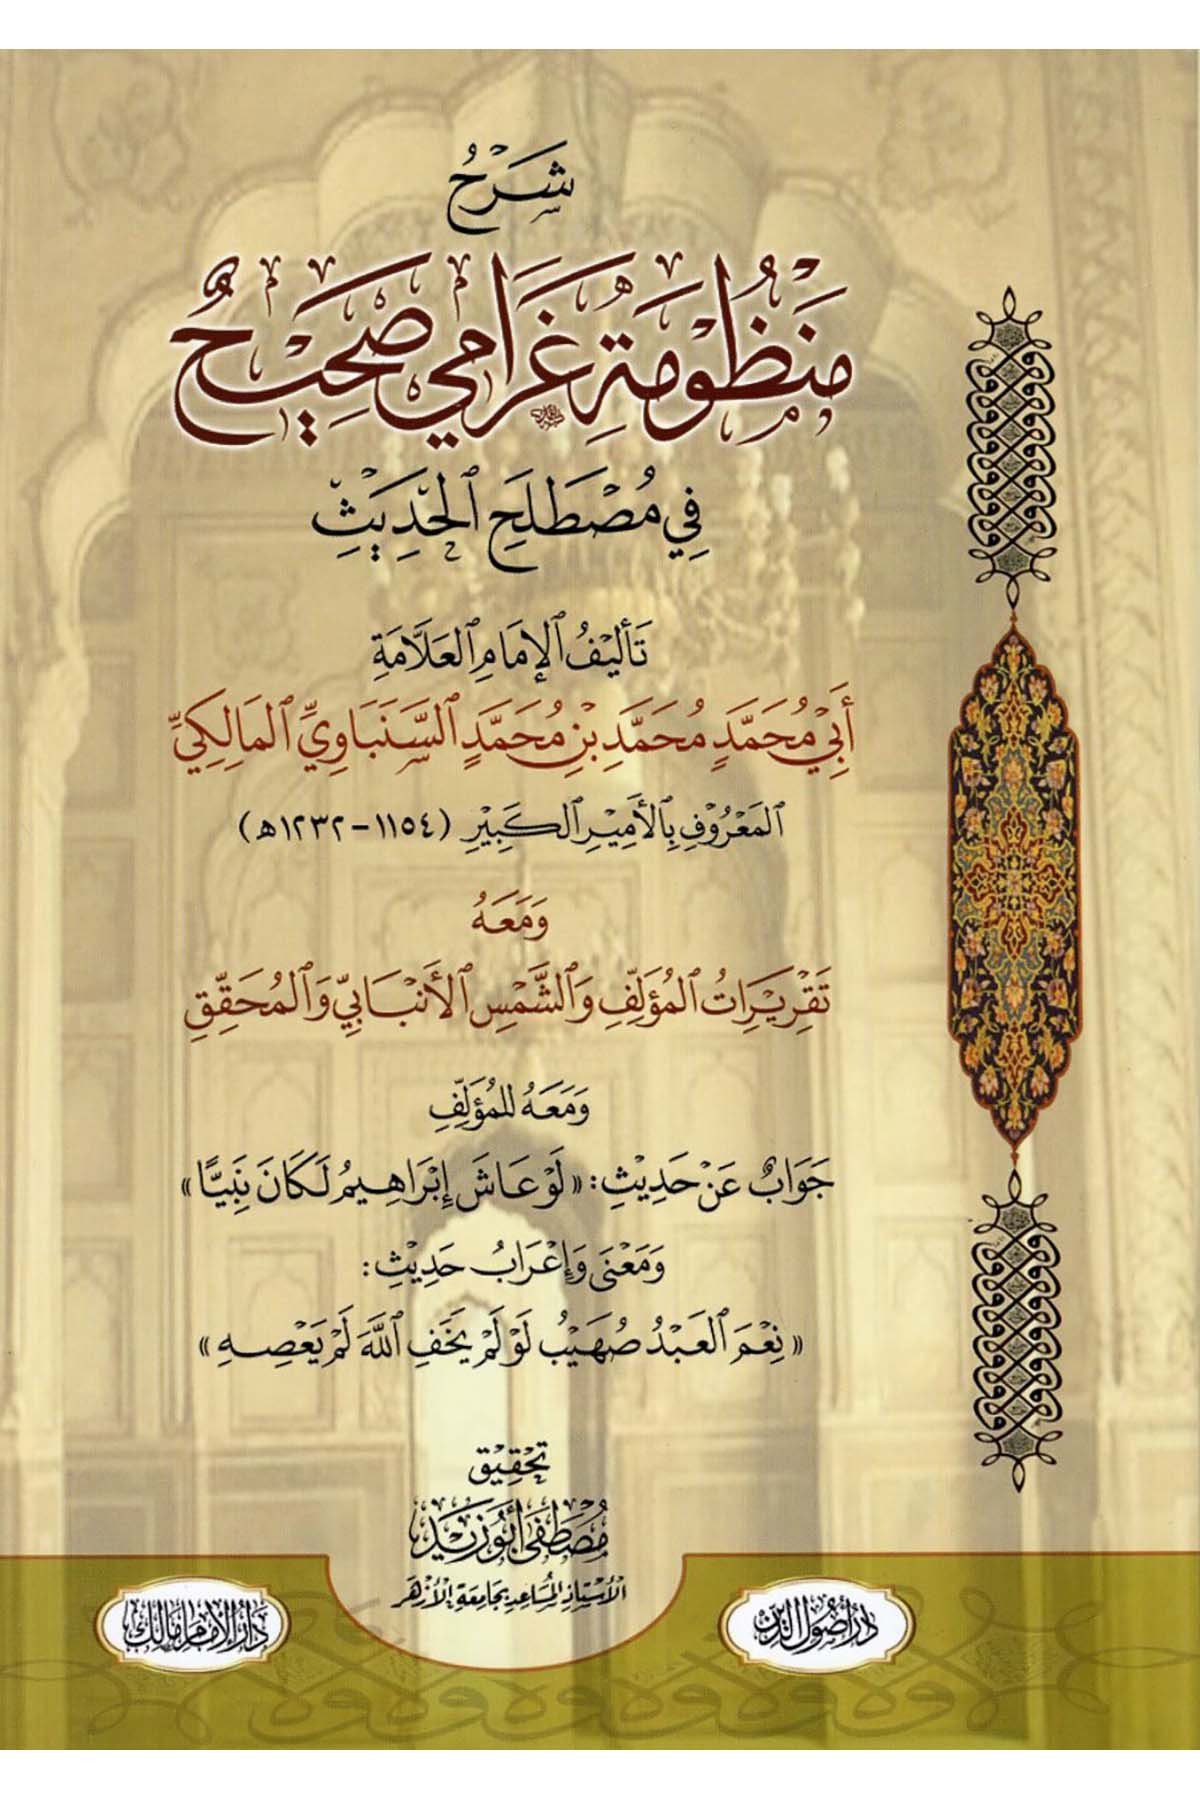 شَرْحُ
مَنْظُومَةِ غَرَامِي صَحِيحٌ
فِي مُصْطَلَحِ الْحَدِيْثِ
تَأْلِيْفُ الْإِمَامِ الْعَلَّامَةِ
أَبِيْ مُحَمَّدٍ مُحَمَّدِ بْنِ مُحَمَّدٍ السَّنَبَاوِيِّ الْمَالِكِيِّ
الْمَعْرُوْفِ بِالْأَمِيْرِ الْكَبِيْرِ (١١٥٤-١٢٣٢هـ)
وَمَعَهُ
تَقْرِيْرَاتُ الْمُؤَلِّفِ وَالشَّمْسِ الْأَنْبَابِيِّ وَالْمُحَقِّقِ
وَمَعَهُ لِلْمُؤَلِّفِ
جَوَابٌ عَنْ حَدِيْثِ: «لَوْ عَاشَ إِبْرَاهِيمُ لَكَانَ نَبِيًّا»
وَمَعْنَى وَإِعْرَابُ حَدِيْثِ:
«نِعْمَ الْعَبْدُ صُهَيْبُ لَوْ لَمْ يَخَفِ اللَّهَ لَمْ يَعْصِهِ»
تَحْقِيْق
مُصْطَفَى أَبُوْ زَيْد
الْأُسْتَاذِ الْمُسَاعِدِ بِجَامِعَةِ الْأَزْهَرِ
دَارُ أُصُولِ الدِّينِ
دَارُ الْإِمَامِ مَالِك